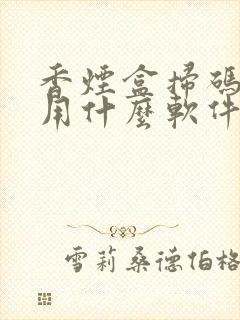 香煙盒掃碼
用什麼軟件
雪莉桑德伯格